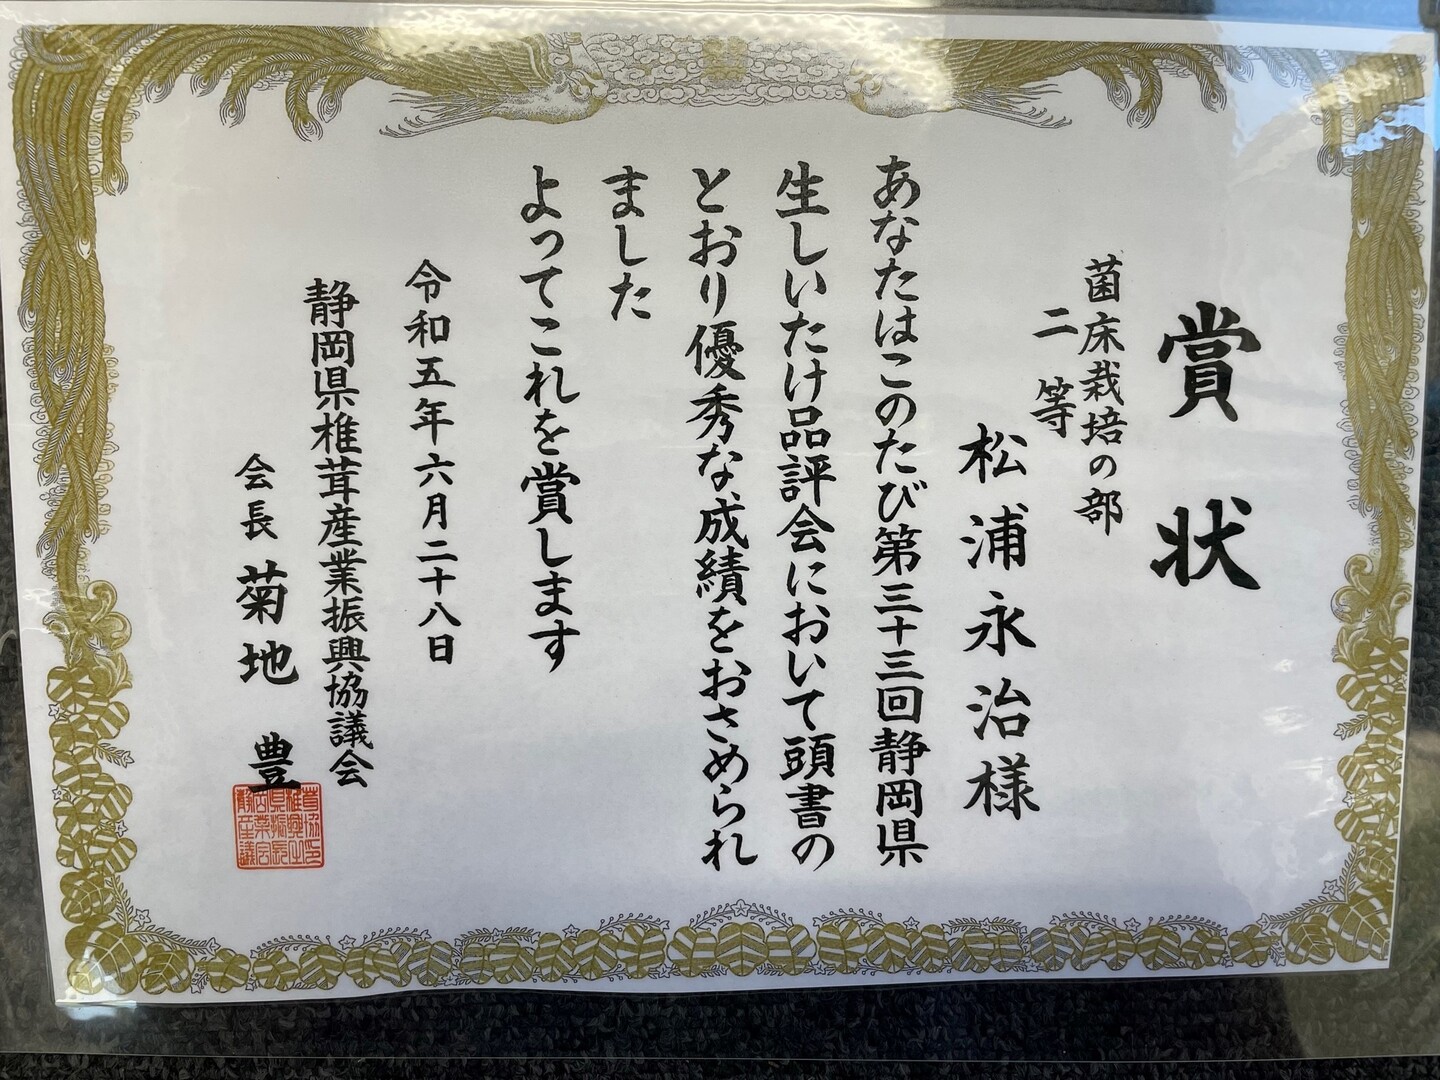 賞状
菌床栽培の部
二等
松浦永治様
あなたはこのたび第三十三回静岡県
生しいたけ品評会において頭書の
とおり優秀な成績をおさめられ
ました
よってこれを賞します
令和五年六月二十八日
静岡県椎茸産業振興協議会
会長 菊地 豊